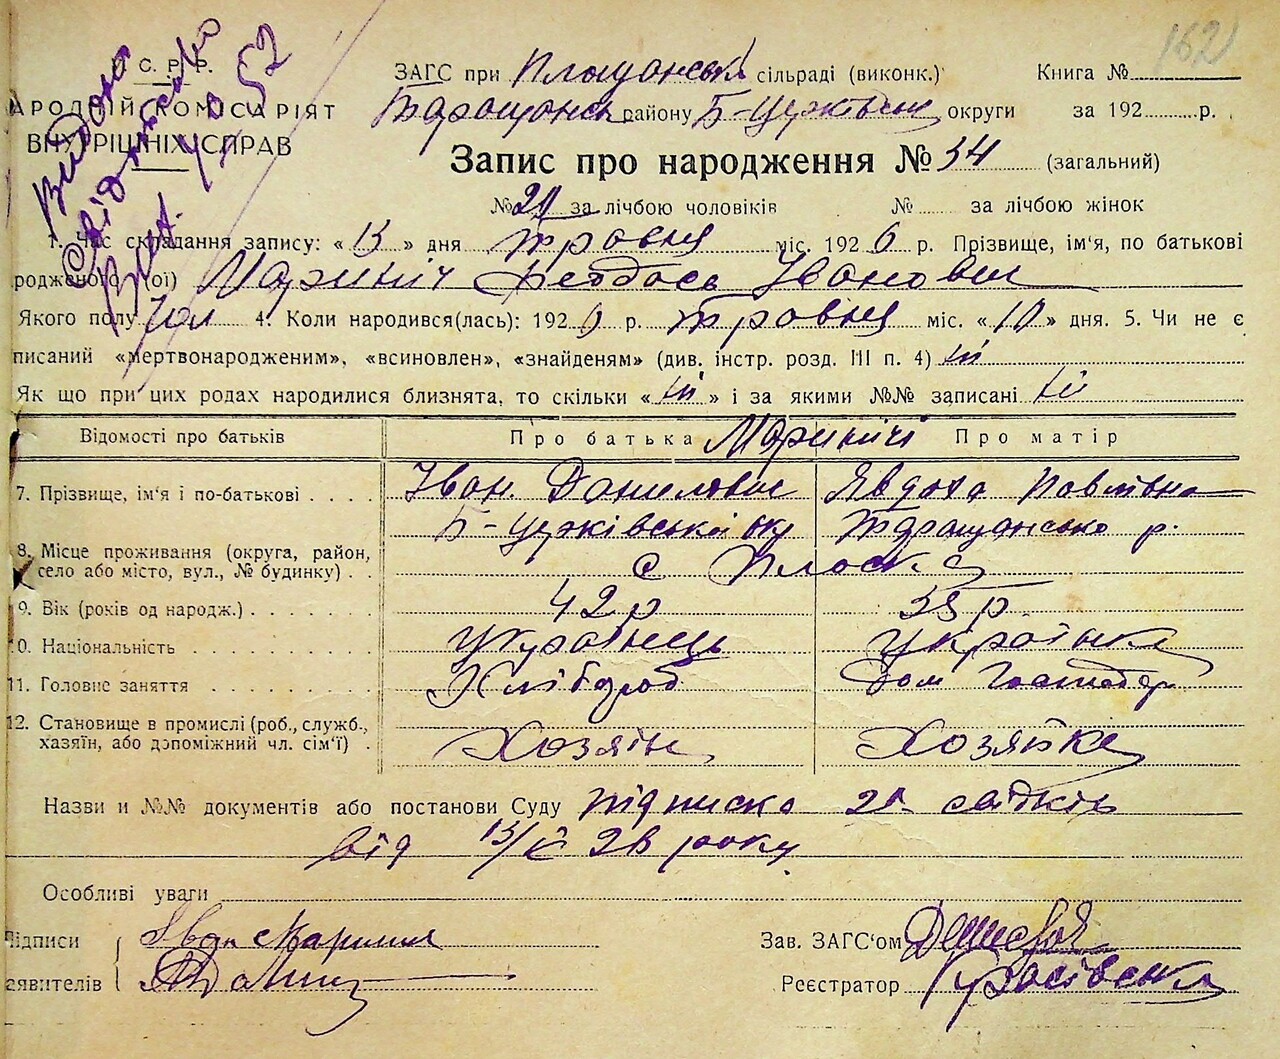 162
У.С.Р.Р.
НАРОДНІЙ КОМІСАРІЯТ
ВНУТРІШНІХ СПРАВ
Видано
Свідоцтво
ЗАГС при Площанській сільраді (виконк.) Книга №
Таращанськ району Б-Церківськ округи за 192 р.
Запис про народження № 34 (загальний)
№ 21 за лічбою чоловіків № за лічбою жінок
1. Час складання запису: « 13 » дня травня міс. 1926 р. Прізвище, ім'я, по батькові
родженого (ої) Маринич Феодось Іванович
Якого полу чол 4. Коли народився(лась): 1926 р. травня міс. « 10 » дня. 5. Чи не є
писаний «мертвонародженим», «всиновлен», «знайденям» (див. інстр. розд. III п. 4) ні
Як що при цих родах народилися близнята, то скільки « ні » і за якими №№ записані ні
Відомості про батьків Про батька Мариничі Про матір
7. Прізвище, ім'я і по-батькові Іван Данилович Явдоха Павлівна
Б-Церківської окр Таращансько р.
8. Місце проживання (округа, район,
село або місто, вул., № будинку) с Плоска
9. Вік (років од народж.) 42 р 38 р.
10. Національність Українець Українка
11. Головне заняття Хлібороб Дом Господар
12. Становище в промислі (роб., служб.,
хазяїн, або допоміжний чл. сім'ї) Хозяїн Хозяйка
Назви и №№ документів або постанови Суду підписка 2х свідків
від 13/V 26 року
Особливі уваги
Підписи
заявителів
Зав. ЗАГС'ом
Реєстратор